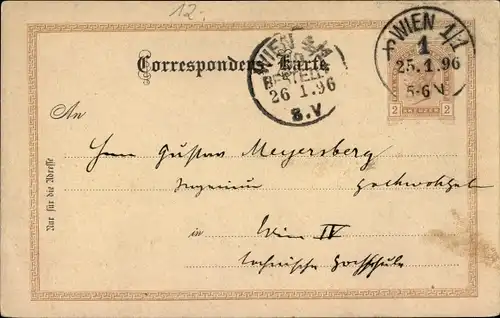 12.-
WIEN 1/1
1
25.1.96
5-6 N
WIEN
BESTELLT
26.1.96
8.V
Correspondenz-Karte
2 2
An
Herrn Gustav Meyersberg
Ingenieur Hochwohlgeb
in Wien IV
technische Hochschule
Nur für die Adresse